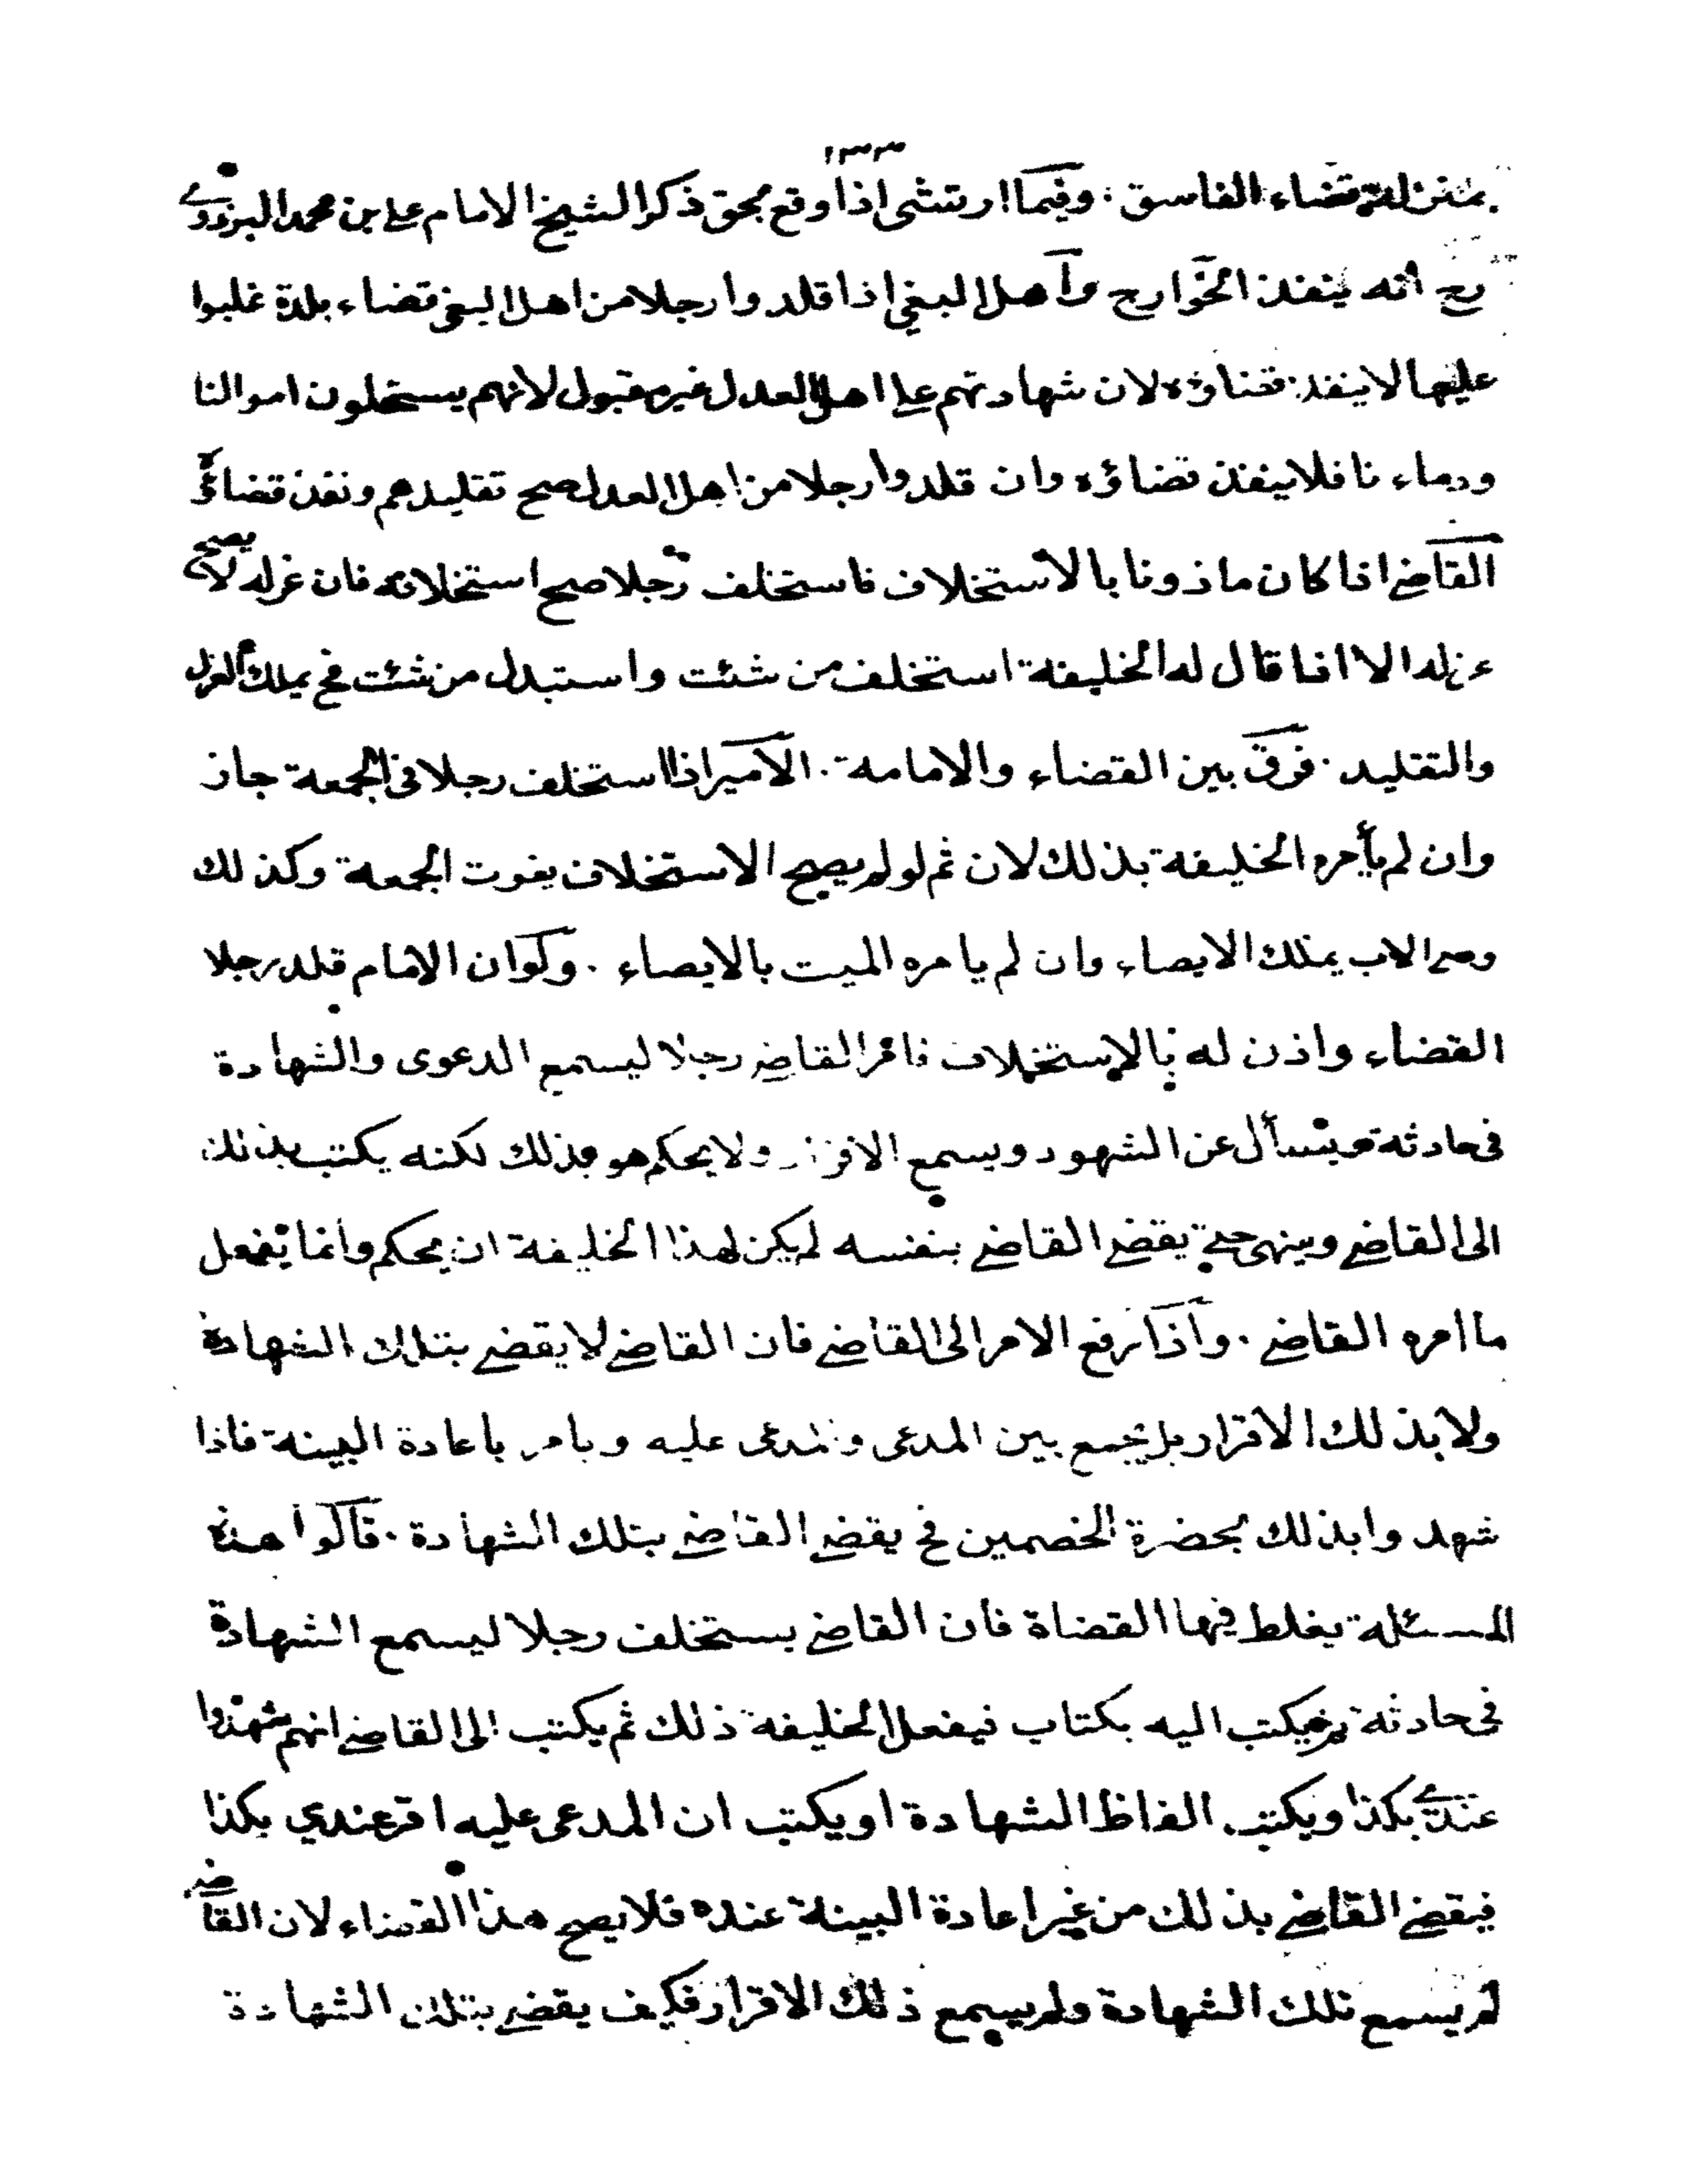 ١٣٣
بمنزلة قضاء الفاسق . وفيما ارتشى اذا وقع بحق ذكر الشيخ الامام علي بن محمد البزدوي
رح انه ينفذ الخوارج واهل البغي اذا قلدوا رجلا من اهل البغي قضاء بلدة غلبوا
عليها لا ينفذ قضاؤه لان شهادتهم على اهل العدل غير مقبول لانهم يستحلون اموالنا
ودماء نا فلا ينفذ قضاؤه وان قلدوا رجلا من اهل العدل صح تقليدهم ونفذ قضاؤه
القاضي اذا كان ماذونا بالاستخلاف فاستخلف رجلا صح استخلافه فان عزله لا يصح
عزله الا اذا قال له الخليفة استخلف من شئت واستبدل من شئت فح يملك العزل
والتقليد . فرق بين القضاء والامامة . الامير اذا استخلف رجلا في الجمعة جاز
وان لم يأمره الخليفة بذلك لان ثم لو لم يصح الاستخلاف يفوت الجمعة وكذلك
وصي الاب يملك الايصاء وان لم يامره الميت بالايصاء . ولو ان الامام قلد رجلا
القضاء واذن له بالاستخلاف فامر القاضي رجلا ليسمع الدعوى والشهادة
في حادثة ويسأل عن الشهود ويسمع الاقرار ولا يحكم هو بذلك لكنه يكتب بذلك
الى القاضي وينهي حتى يقضي القاضي بنفسه لم يكن لهذا الخليفة ان يحكم وانما يفعل
ما امره القاضي . واذا رفع الامر الى القاضي فان القاضي لا يقضي بتلك الشهادة
ولا بذلك الاقرار بل يجمع بين المدعى والمدعى عليه ويامر باعادة البينة فاذا
شهدوا بذلك بحضرة الخصمين فح يقضي القاضي بتلك الشهادة . قالوا هذه
المسئلة يغلط فيها القضاة فان القاضي يستخلف رجلا ليسمع الشهادة
في حادثة ثم يكتب اليه بكتاب فيفعل الخليفة ذلك ثم يكتب الى القاضي انهم شهدوا
عندي بكذا ويكتب الفاظ الشهادة او يكتب ان المدعى عليه اقر عندي بكذا
فيقضي القاضي بذلك من غير اعادة البينة عنده فلا يصح هذا القضاء لان القاضي
لم يسمع تلك الشهادة ولم يسمع ذلك الاقرار فكيف يقضي بتلك الشهادة